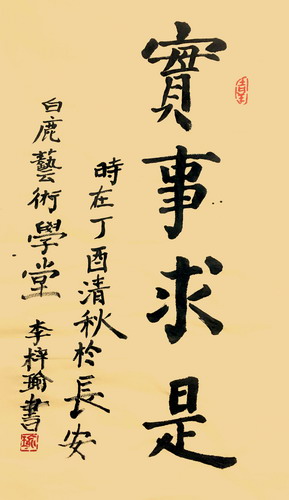 實事求是
時在丁酉清秋於長安
白鹿藝術學堂 李梓瑜書